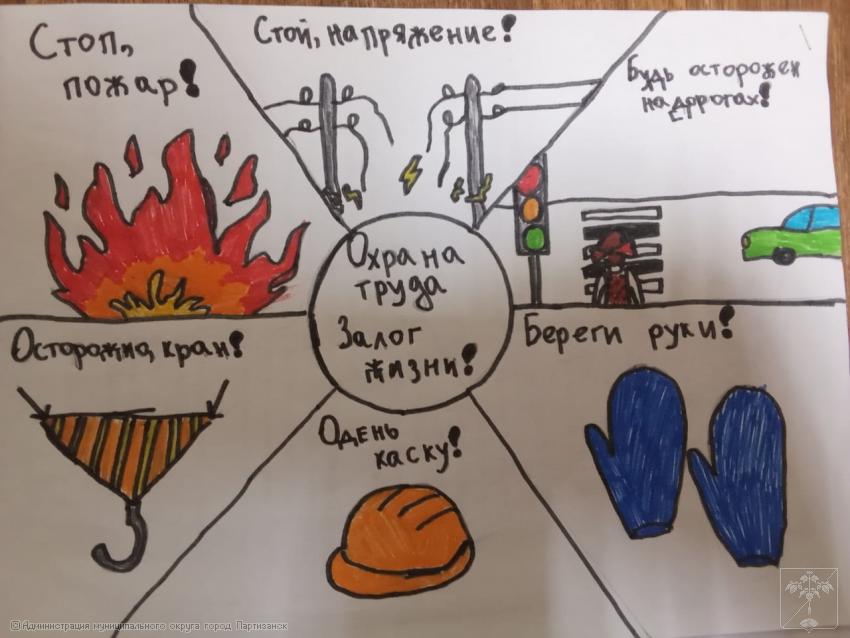 Стоп,
пожар!
Стой, напряжение!
Будь осторожен
на дорогах!
Охрана
труда
Залог
жизни!
Осторожно, кран!
Береги руки!
Одень
каску!
© Администрация муниципального округа город Партизанск